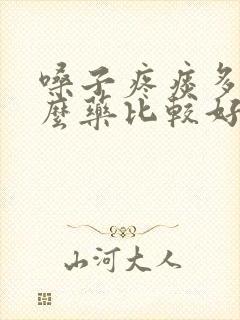 嗓子疼痰多
麼藥比較好
山河大人